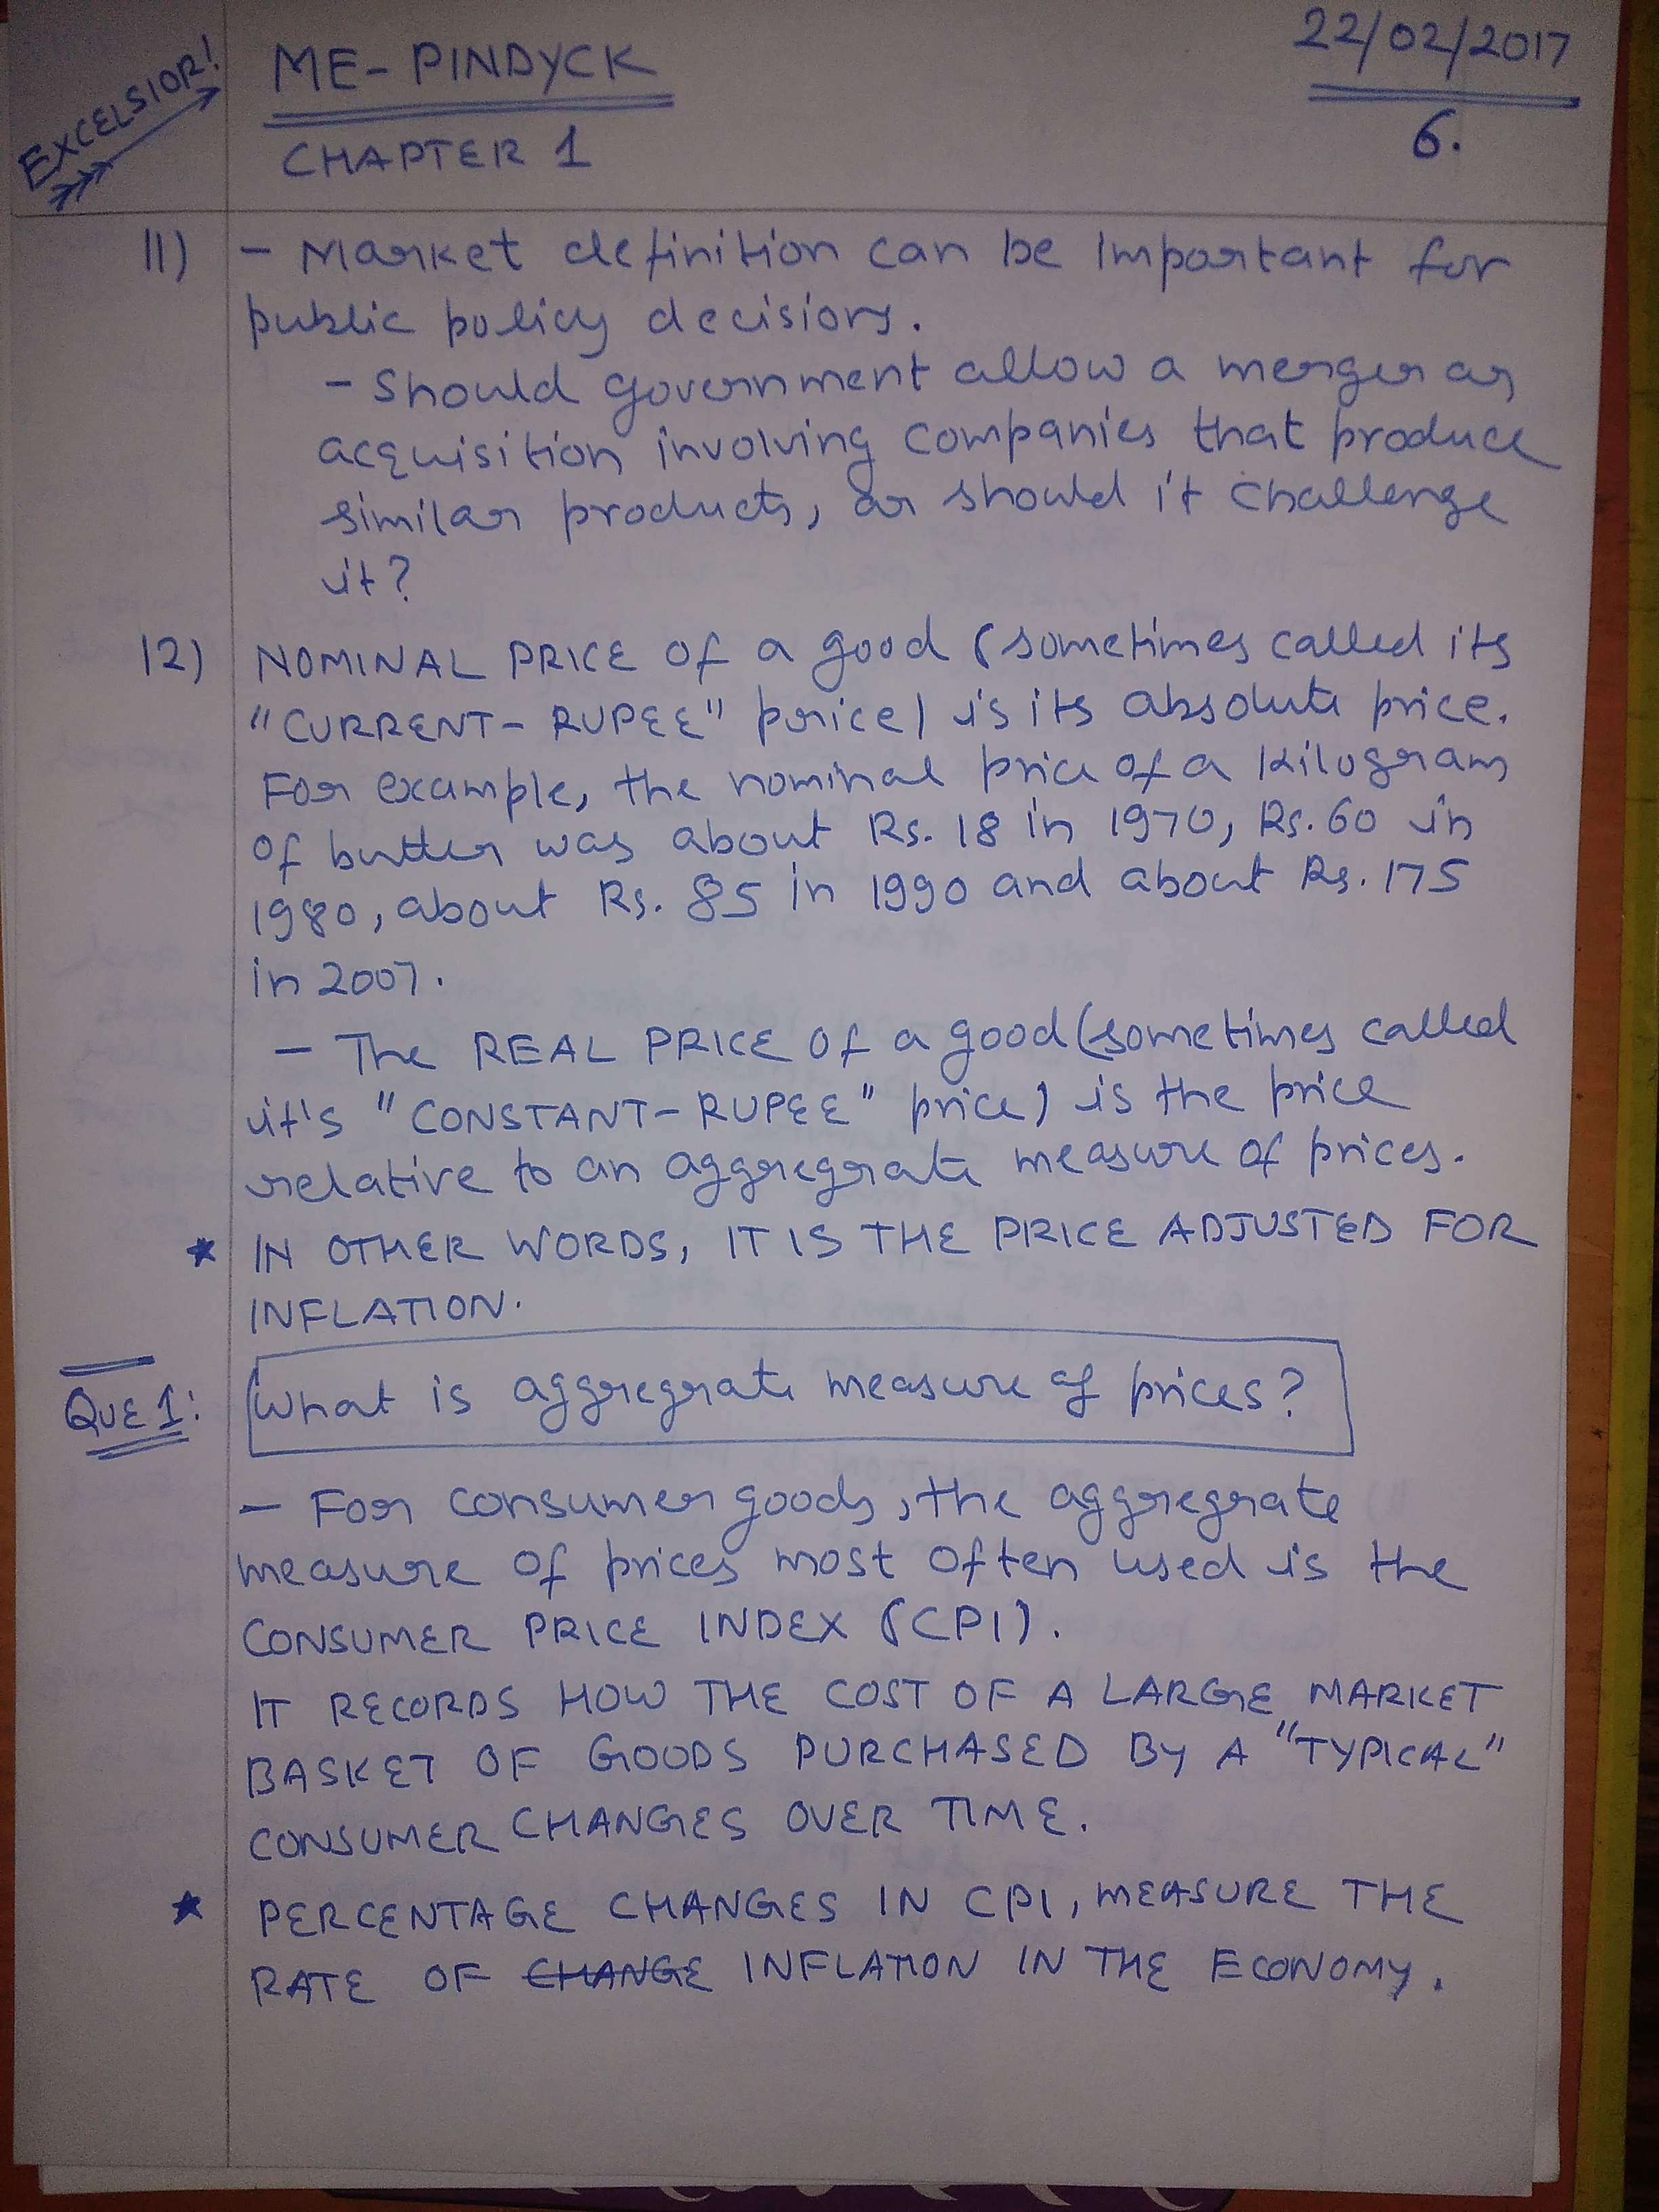 EXCELSIOR!
ME- PINDYCK
22/02/2017
CHAPTER 1
6.
11) - Market definition can be important for
public policy decisions.
- Should government allow a merger or
acquisition involving companies that produce
similar products, or should it challenge
it?
12) NOMINAL PRICE of a good (sometimes called its
"CURRENT- RUPEE" price) is its absolute price.
For example, the nominal price of a kilogram
of butter was about Rs. 18 in 1970, Rs. 60 in
1980, about Rs. 85 in 1990 and about Rs. 175
in 2007.
- The REAL PRICE of a good (sometimes called
it's "CONSTANT- RUPEE" price) is the price
relative to an aggregrate measure of prices.
★ IN OTHER WORDS, IT IS THE PRICE ADJUSTED FOR
INFLATION.
QUE 1: What is aggregrate measure of prices?
- For consumer goods, the aggregrate
measure of prices most often used is the
CONSUMER PRICE INDEX (CPI).
IT RECORDS HOW THE COST OF A LARGE MARKET
BASKET OF GOODS PURCHASED BY A "TYPICAL"
CONSUMER CHANGES OVER TIME.
★ PERCENTAGE CHANGES IN CPI, MEASURE THE
RATE OF CHANGE INFLATION IN THE ECONOMY.